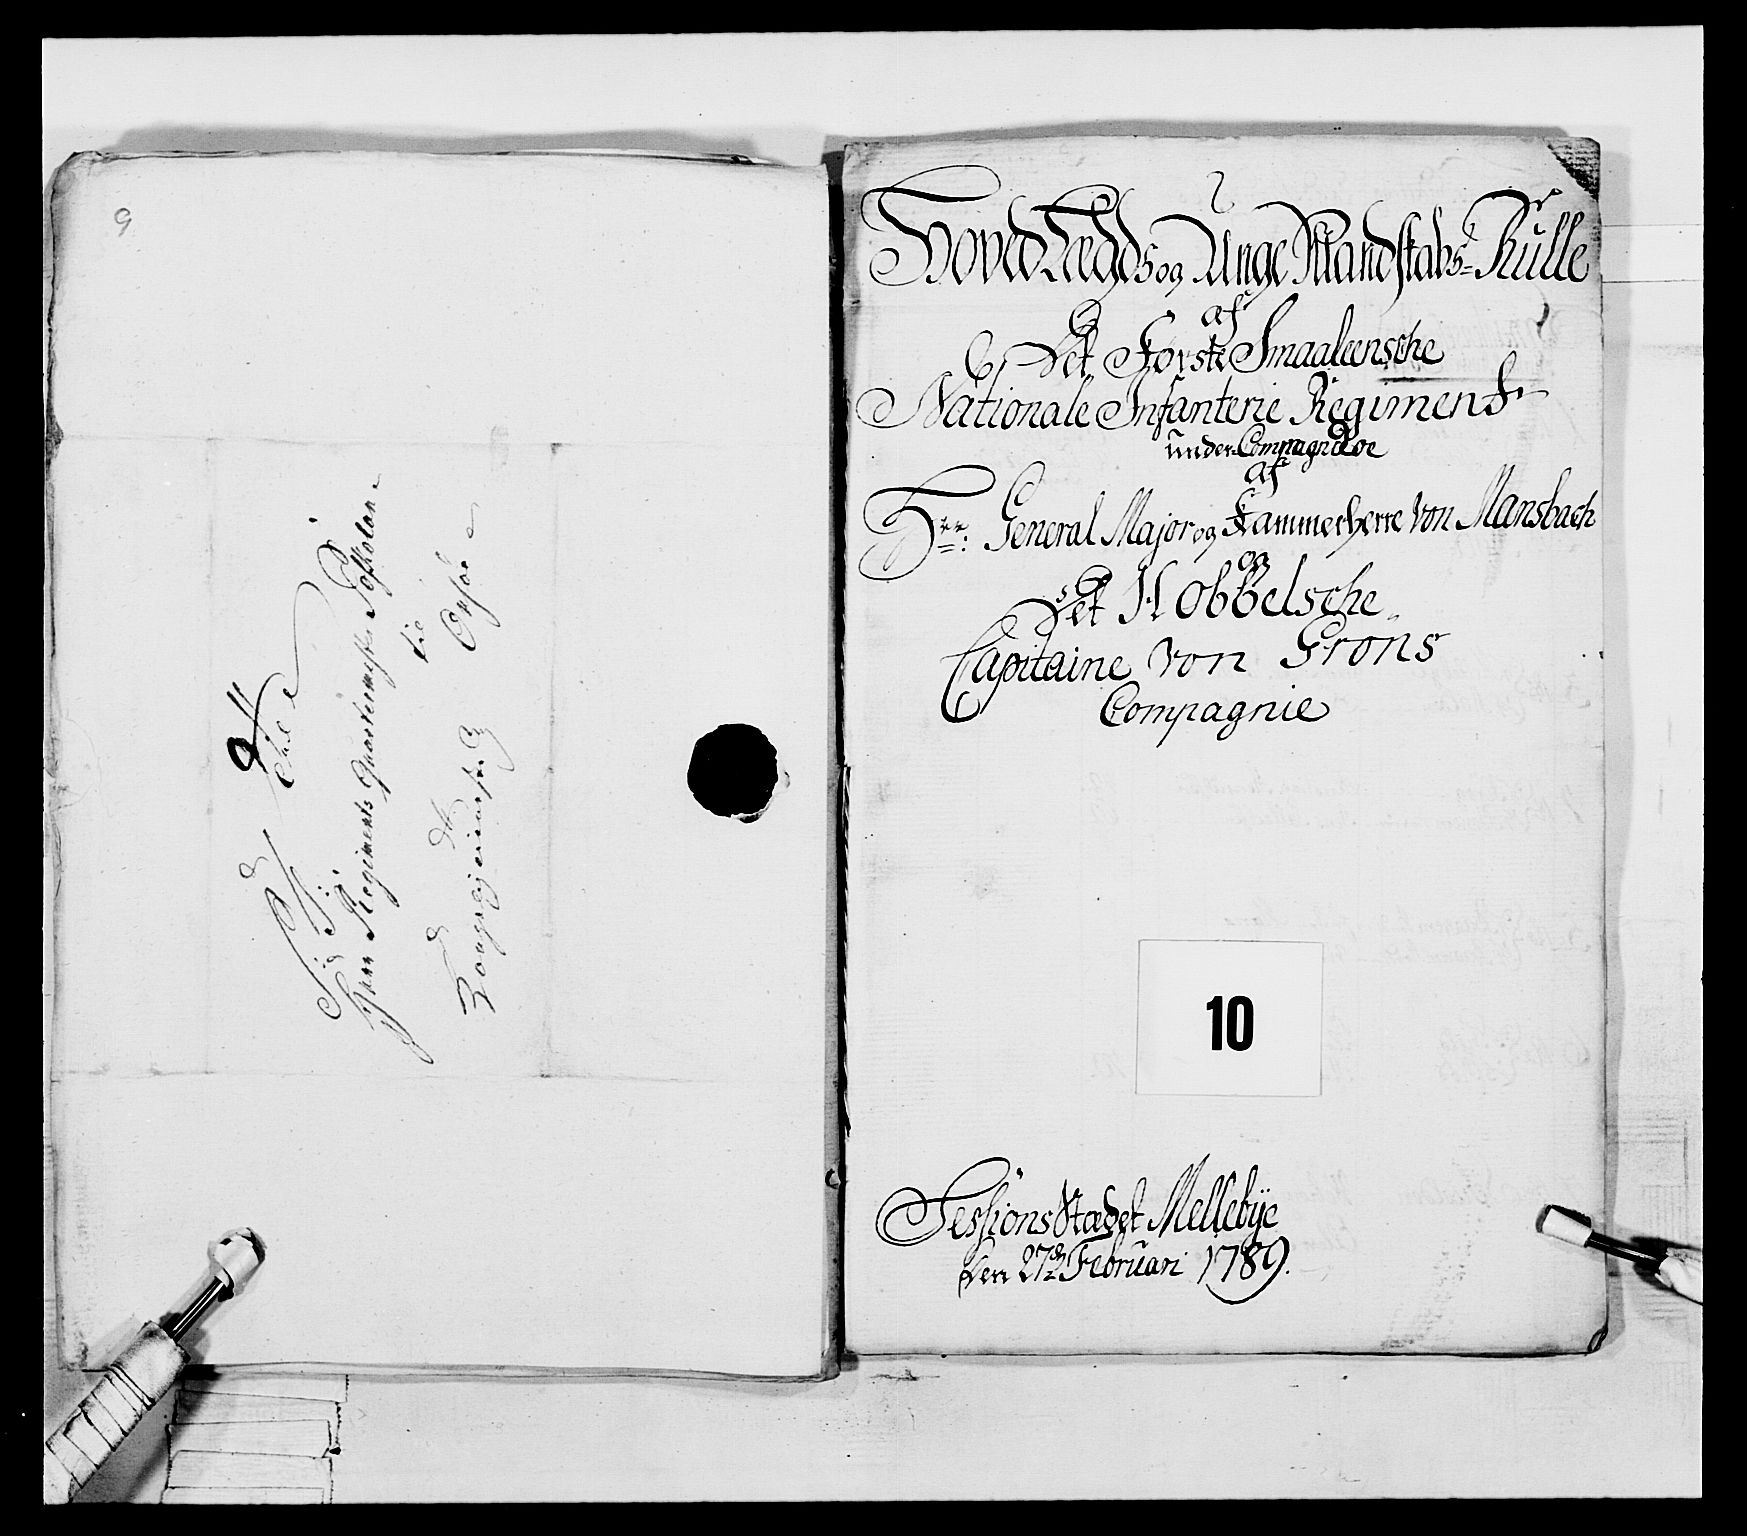 9
9
Herr Regiments Quarteermester
til
Hoved Lægds og Unge Mandskabs=Rulle
af
Det Første Smaaleensche
Nationale Infanterie Regiment
under Compagnie
af
Hrr: General Major og Kammerherre von Mansbach
Det Hobbelsche
Capitaine von Gröns
Compagnie
10
Sessions Stædet Mellebÿe
den 27de Februari 1789.